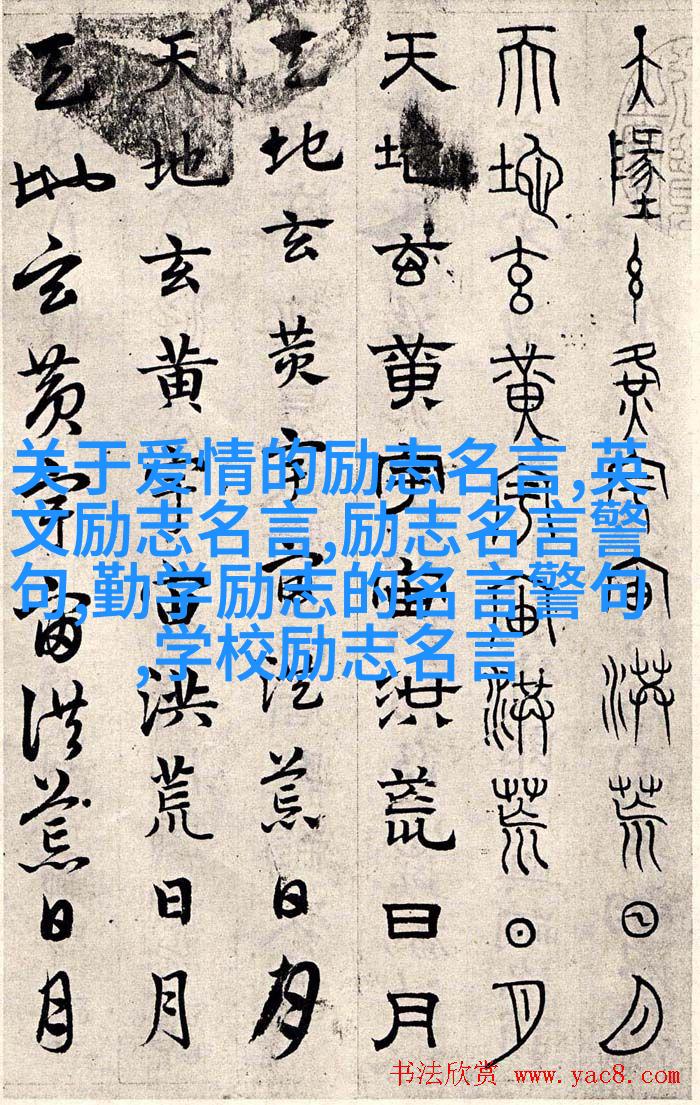 天墬玄黄宇宙洪荒日月
天地玄黄宇宙洪荒日月
天地玄黄宇宙洪荒日月
天地玄黄宇宙洪荒日月
天地玄黄宇宙洪荒日月
天地玄黄宇宙洪荒日月
关于爱情的励志名言,英
文励志名言,励志名言警
句,勤学励志的名言警句
,学校励志名言
书法欣赏 www.yac8.com